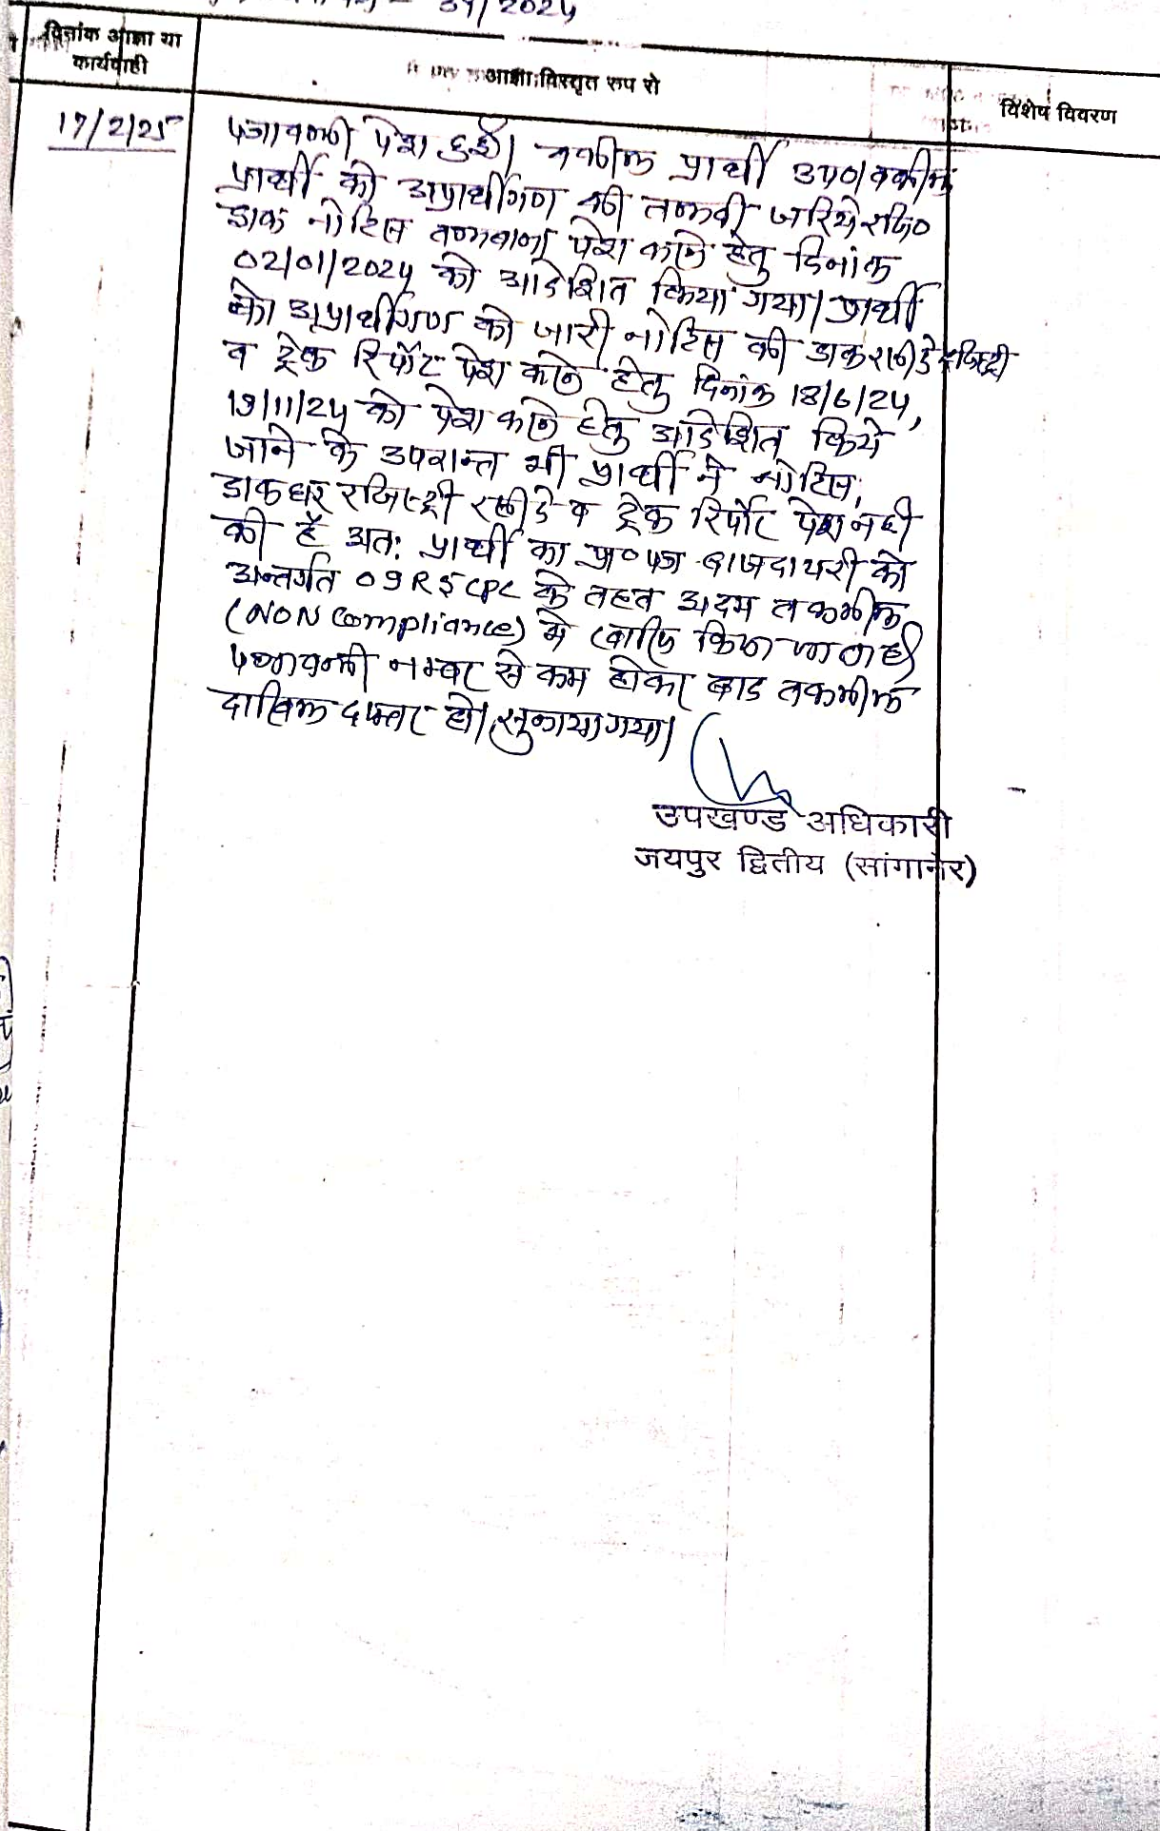 34/2024
दिनांक आज्ञा या
कार्यवाही
आज्ञा विस्तृत रूप से
विशेष विवरण
17/2/25
पत्रावली पेश हुई। वकील प्रार्थी उप०। वकील
प्रार्थी को अप्रार्थीगण की तलबी जरिये रजि०
डाक नोटिस तलबाना पेश करने हेतु दिनांक
02/01/2024 को आदेशित किया गया। प्रार्थी
को अप्रार्थीगण को जारी नोटिस की डाक रसीदे रजिस्ट्री
व ट्रेक रिर्पोट पेश करने हेतु दिनांक 18/6/24,
19/11/24 को पेश करने हेतु आदेशित किये
जाने के उपरान्त भी प्रार्थी ने नोटिस,
डाकघर रजिस्ट्री रसीदे व ट्रेक रिर्पोट पेश नही
की है अतः प्रार्थी का प्र० पत्र को
अन्तर्गत 09R5CPC के तहत अदम तकमील
(NON Compliance) मे खारिज किया जाता है।
पत्रावली नम्बर से कम होकर बाद तकमील
दाखिल दफ्तर हो। सुनाया गया।
उपखण्ड अधिकारी
जयपुर द्वितीय (सांगानेर)